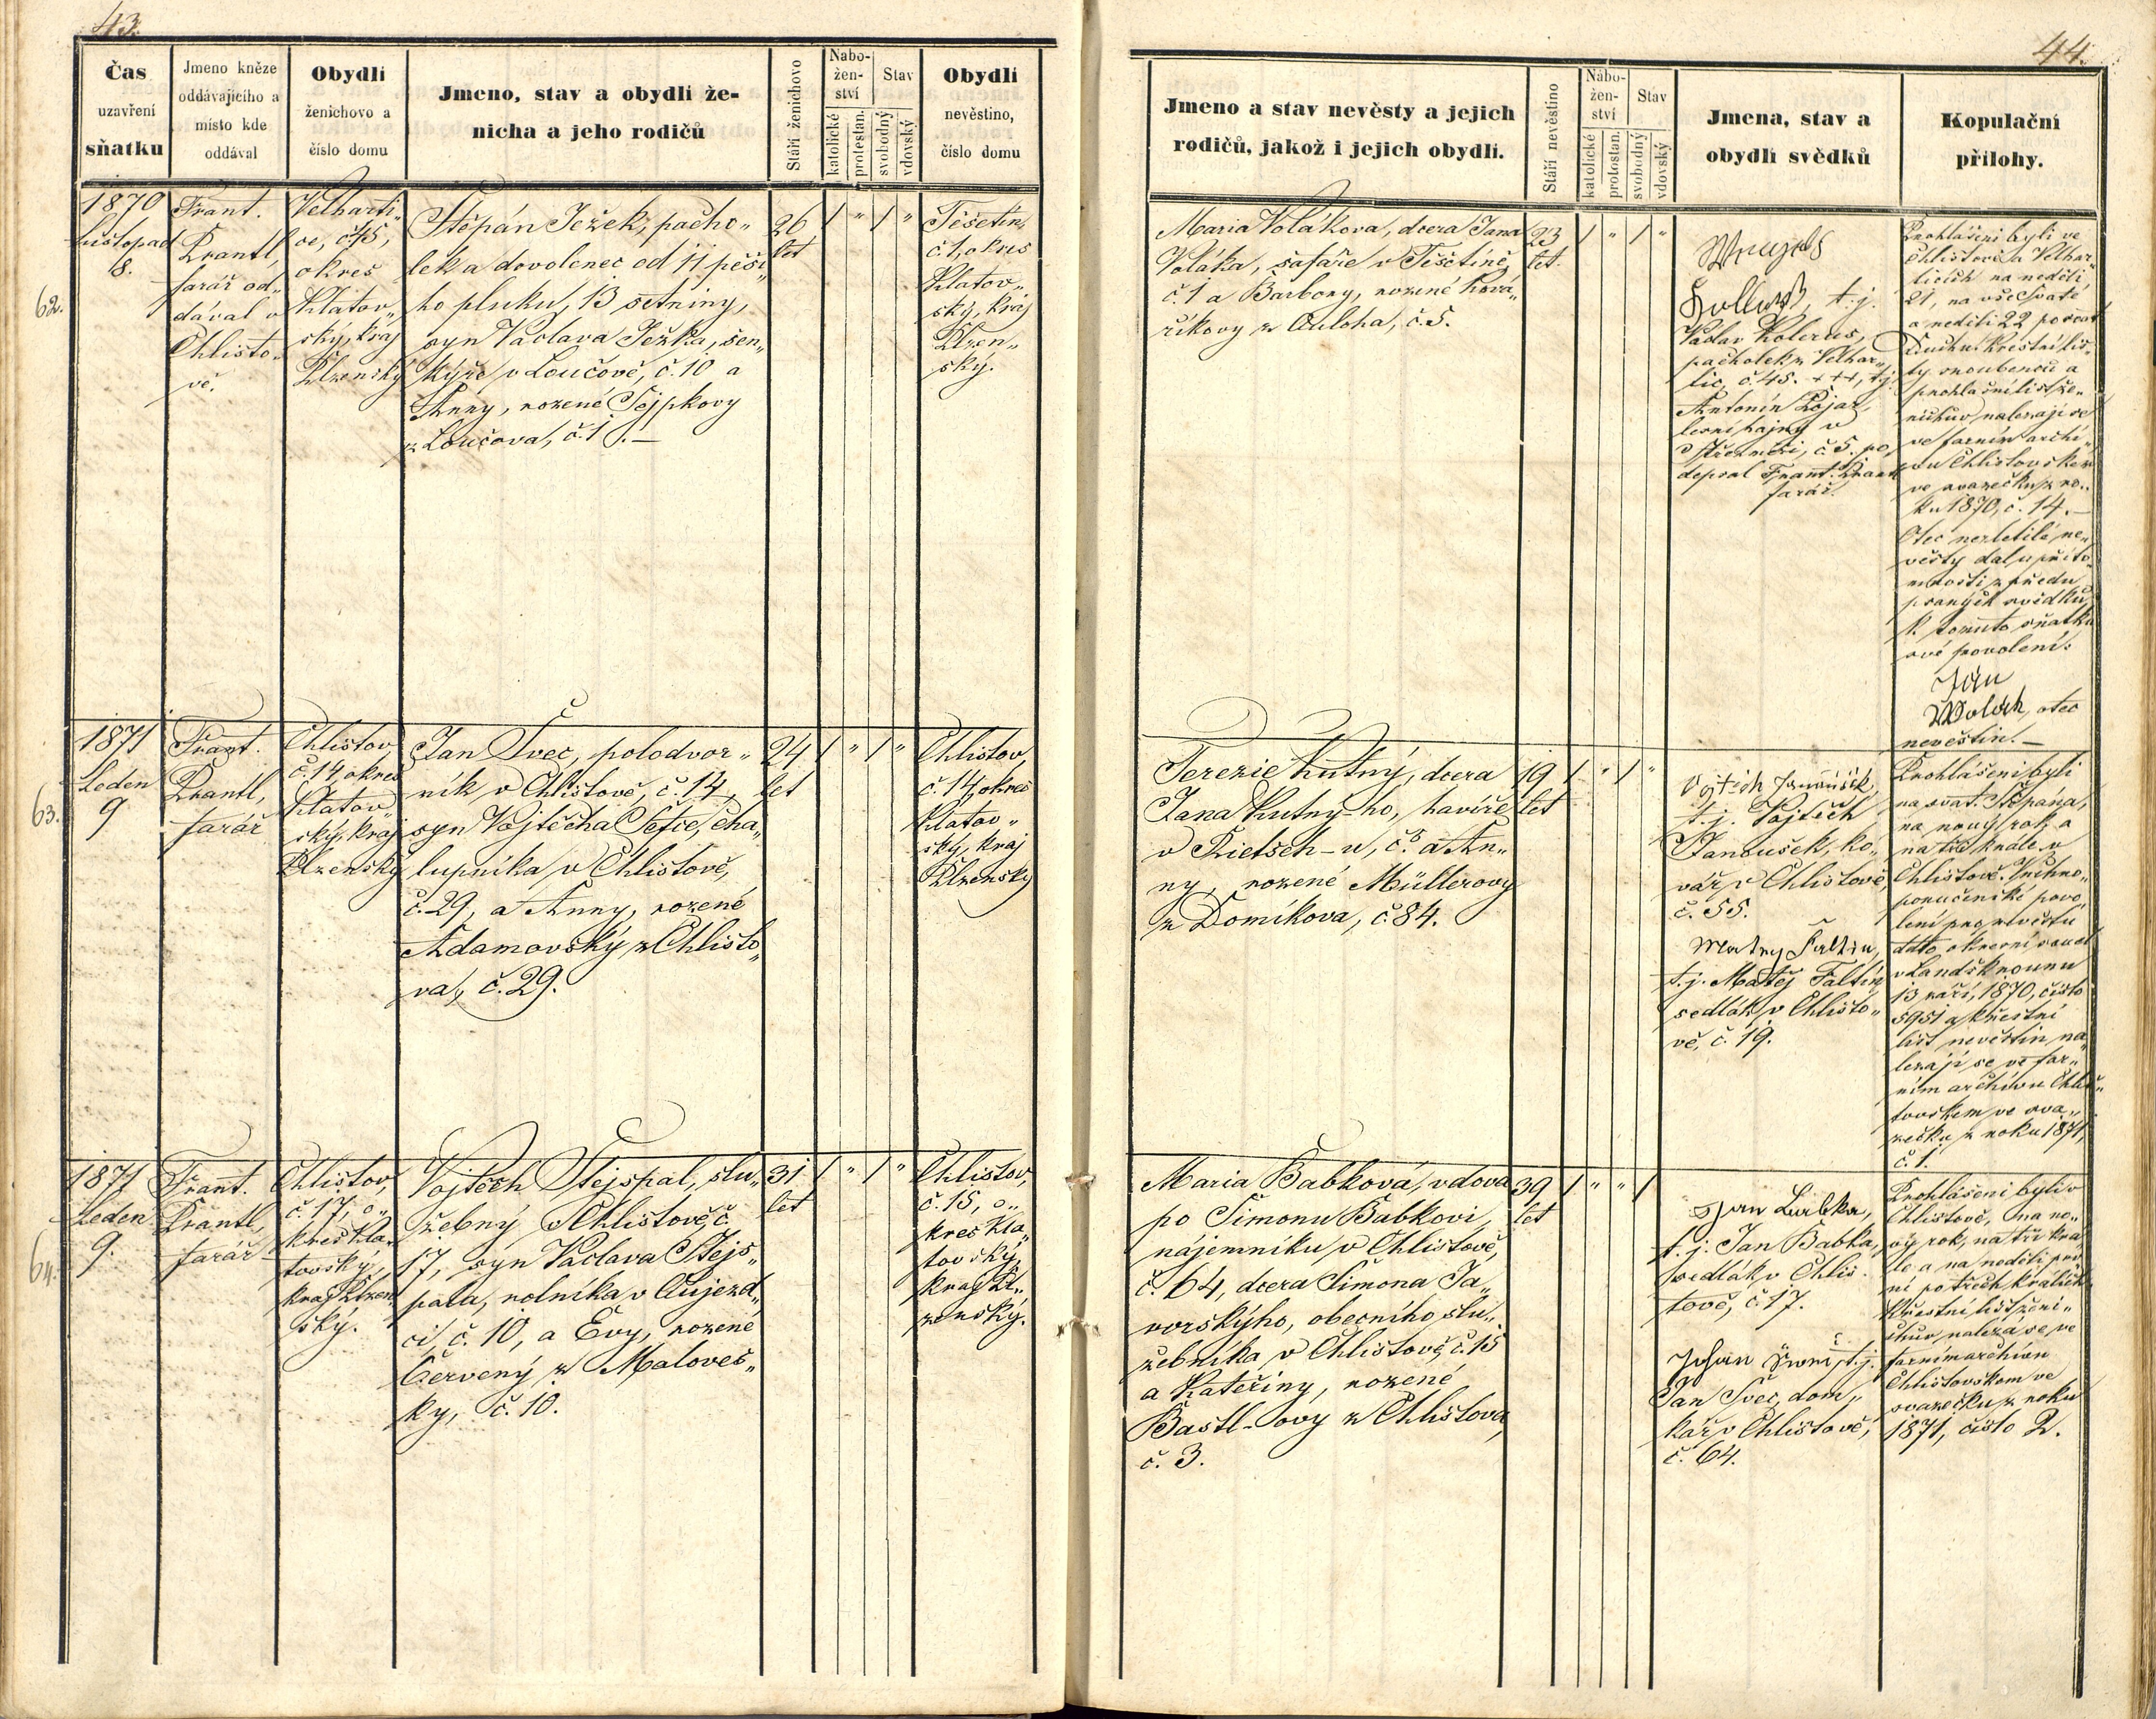 43.
Čas
uzavření
sňatku
Jmeno kněze
oddávajícího a
místo kde
oddával
Obydlí
ženichovo a
číslo domu
Jmeno, stav a obydlí že-
nicha a jeho rodičů
Stáří ženichovo
Nabo-
žen-
ství
katolické
protestan.
Stav
svobodný
vdovský
Obydlí
nevěstino,
číslo domu
62.
1870
Listopad
8.
Frant.
Prantl,
farář od„
dával v
Chlisto„
vě.
Velharti„
ce, č45,
okres
Klatov„
ský, kraj
Plzenský
Štěpán Ježek, pacho„
lek a dovolenec od 11 pěší„
ho pluku, 13 setniny,
syn Václava Ježka, šen„
kýře v Loučově, č. 10 a
Anny, rozené Tejpkovy
z Loučova, č. 1.—
26
let
1 „ 1 „
Těšetín,
č. 1, okres
Klatov„
ský, kraj
Plzen„
ský.
63.
1871
Leden
9
Frant.
Prantl,
farář
Chlistov,
č. 14, okres
Klatov„
ský, kraj
Plzenský
Jan Švec, polodvor„
ník v Chlistově, č. 14,
syn Vojtěcha Šefce, cha„
lupníka v Chlistově,
č. 29, a Anny, rozené
Adamovský z Chlisto„
va, č. 29.
24
let
1 „ 1 „
Chlistov,
č. 14, okres
Klatov„
ský, kraj
Plzenský
64.
1871
Leden
9.
Frant.
Prantl,
farář
Chlistov,
č. 17, o„
kres Kla„
tovský,
kraj Plzen„
ský.
Vojtěch Stejspal, slu„
žebný v Chlistově, č.
17, syn Václava Stejs„
pala, rolníka v Aujezd„
ci, č. 10, a Evy, rozené
Červený z Maloves„
ky, č. 10.
31
let
1 „ 1 „
Chlistov,
č. 15, o„
kres Kla„
tovský,
kraj Pl„
zenský.
44.
Jmeno a stav nevěsty a jejich
rodičů, jakož i jejich obydlí.
Stáří nevěstino
Nábo-
žen-
ství
katolické
protestan.
Stav
svobodný
vdovský
Jmena, stav a
obydlí svědků
Kopulační
přílohy.
Maria Volákova, dcera Jana
Voláka, šafáře v Těšetíně,
č. 1 a Barbory, rozené Ková„
říkovy z Auloha, č. 5.
23
let.
1 „ 1 „
t. j.
Václav Kolerus,
pacholek z Velhar„
tic, č. 45. +++, t.j.
Antonín Pojar,
lesní hajný v
č. 5. po„
depsal Frant. Prantl
farář.
Prohlášeni byli ve
Chlistově a Velhar„
ticích na neděli
21, na vše Svaté
a neděli 22 po svat.
Duchu. Křestní lis„
ty snoubenců a
prohlašní list že„
nichův nalezají se
ve farním archi„
vu Chlistovském
ve svazečku z ro„
ku 1870, č. 14.—
Otec nezletilé ne„
věsty dal u přito„
mnosti z předu
psaných svědků
k tomuto sňatku
své povolení.
Jan
Wolák, otec
nevěstin.—
Terezie Kutný, dcera
Jana Kutný-ho, havíře
v Rietsch-u, č. 8 a An„
ny, rozené Müllerovy
z Domíkova, č 84.
19
let
1 „ 1 „
Vojtěch Janoušek,
t. j. Vojtěch
Janoušek, ko„
vář v Chlistově,
č. 55.
Matěj Faltin,
t. j. Matěj Faltín,
sedlák v Chlisto„
vě, č. 19.
Prohlášeni byli
na svat. Štěpána,
na nový rok, a
na tři krále v
Chlistově. Vrchno„
poručenské povo„
lení pro nevěstu
dtto okresní soud
v Landškrounu
13 září, 1870, číslo
5951 a křestní
list nevěstin na„
lezají se ve far„
ním archivu Chlis„
tovském ve sva„
zečku z roku 1871,
č. 1.
Maria Babková, vdova
po Šimonu Babkovi,
nájemníku v Chlistově,
č. 64, dcera Šimona Ja„
vorskýho, obecního slu„
žebníka v Chlistově, č. 15
a Kateřiny, rozené
Bastl-ovy z Chlistova,
č. 3.
39
let
1 „ „ 1
Jan Babka,
t. j. Jan Babka,
sedlák v Chlis„
tově, č. 17.
Johan t. j.
Jan Švec, dom„
kář v Chlistově,
č. 64.
Prohlášeni byli v
Chlistově, na no„
vý rok, na tři krá„
le a na neděli prv„
ní po třech králích.
Křestní list ženi„
chův nalezá se ve
farním archivu
Chlistovském ve
svazečku z roku
1871, číslo 2.